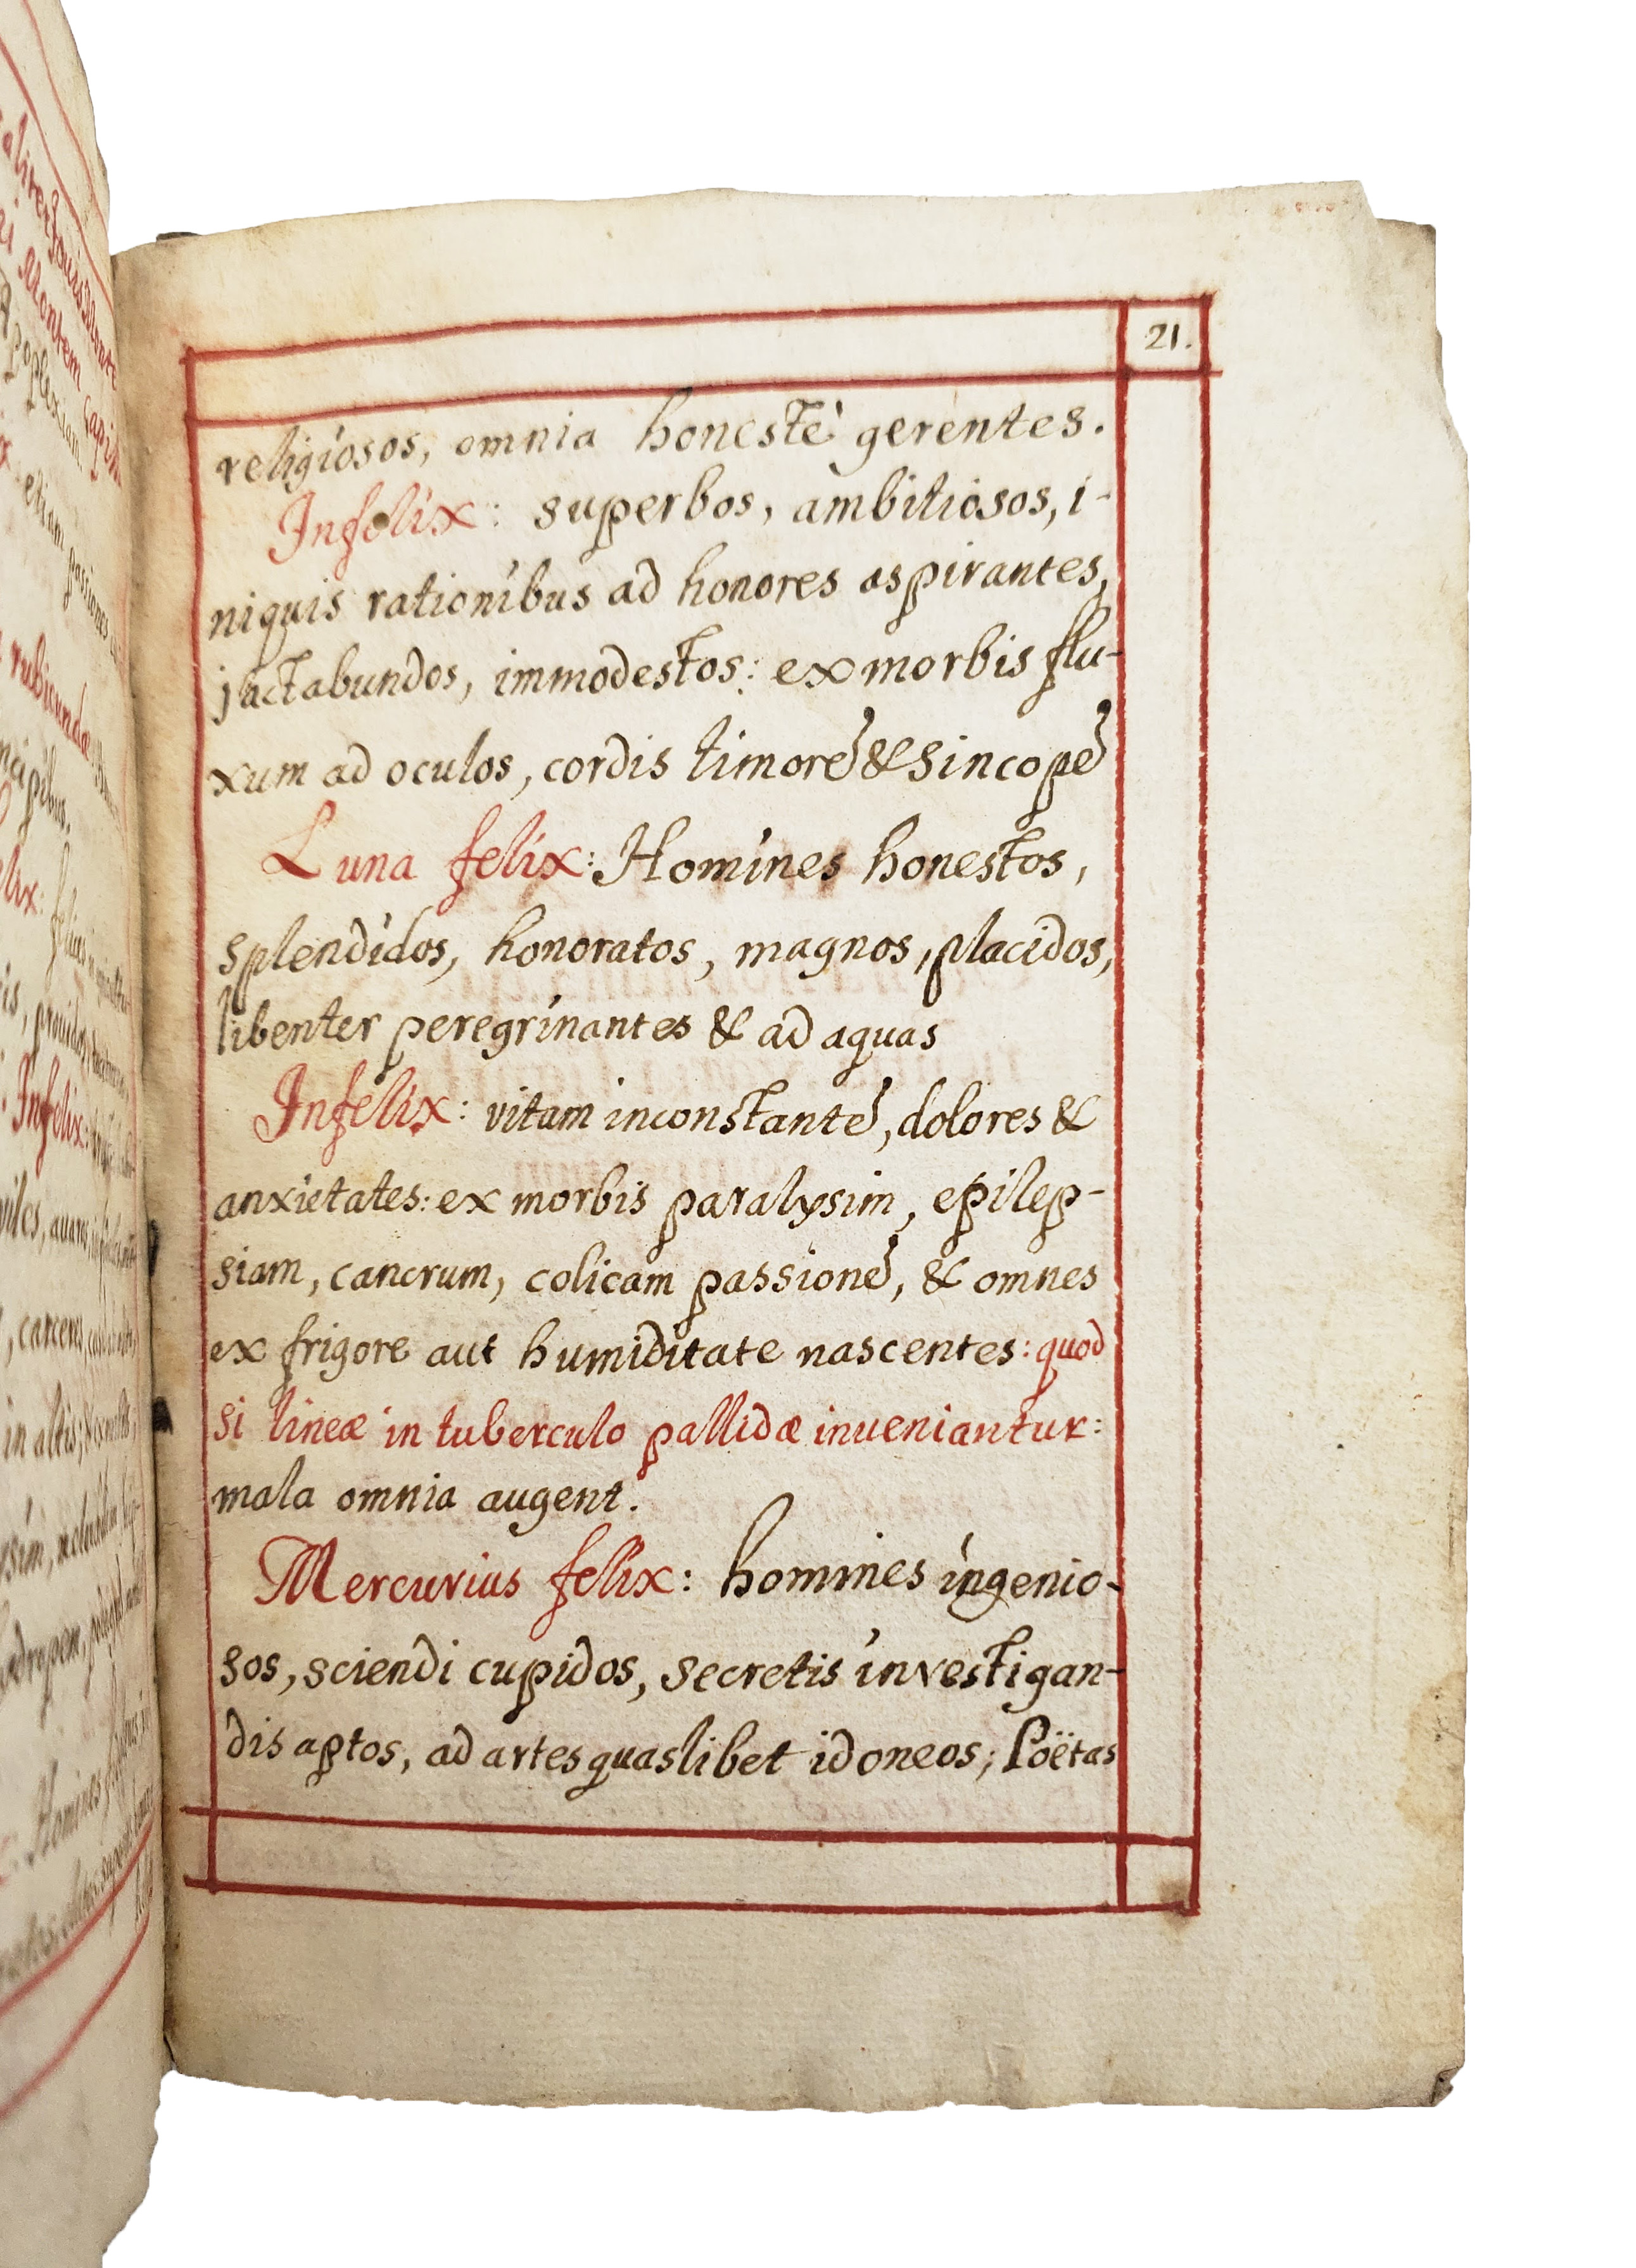 21.
religiosos, omnia honestè gerentes.
Infelix: superbos, ambitiosos, i-
niquis rationibus ad honores aspirantes,
jactabundos, immodestos: ex morbis flu-
xum ad oculos, cordis timorē & sincopē
Luna felix: Homines honestos,
splendidos, honoratos, magnos, placidos,
libenter peregrinantes & ad aquas
Infelix: vitam inconstantē, dolores &
anxietates: ex morbis paralysim, epilep-
siam, cancrum, colicam passionē, & omnes
ex frigore aut humiditate nascentes: quod
si lineæ in tuberculo pallidæ inueniantur:
mala omnia augent.
Mercurius felix: homines ingenio-
sos, sciendi cupidos, secretis investigan-
dis aptos, ad artes quaslibet idoneos; Poëtas